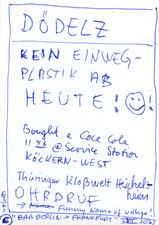 DÖDELZ
KEIN EINWEG-
PLASTIK AB
HEUTE!
Bought a Coca Cola
@ Service Station
KÖCKERN-WEST
Thüringer Kloßwelt Heichel-
heim
OHRDRUF
→ Funny Name of village!
BAB BERLIN → FRANKFURT